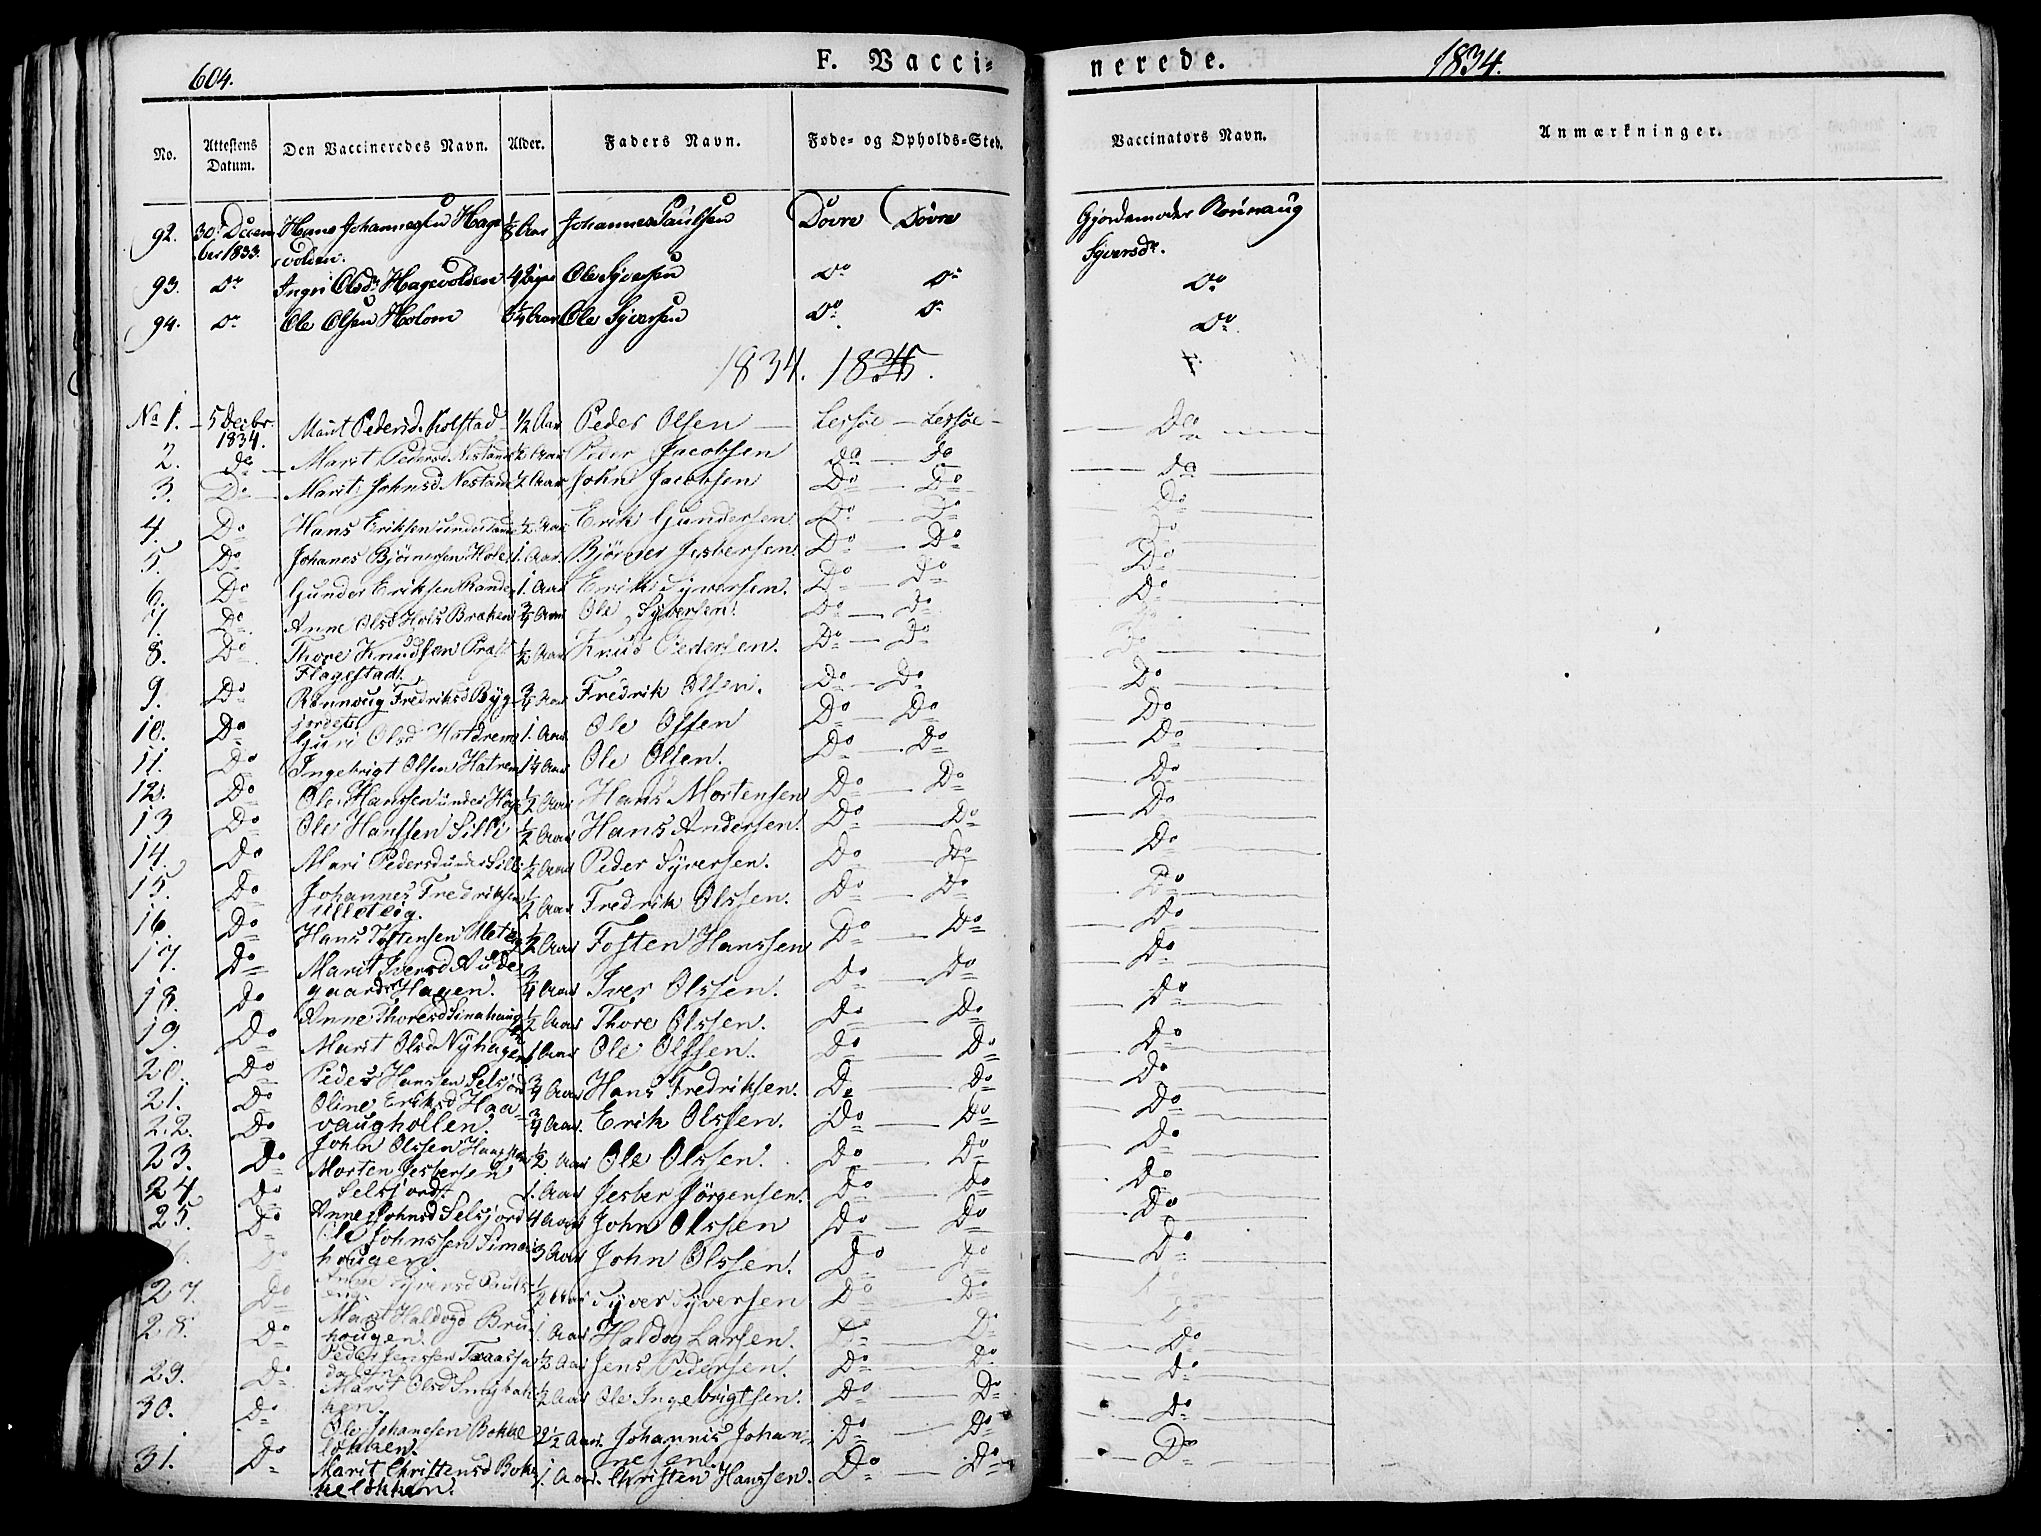 604.
F. Vacci-
nerede.
1834.
No.
Attestens Datum.
Den Vaccineredes Navn.
Alder.
Faders Navn.
Føde- og Opholds-Sted.
Vaccinators Navn.
Anmærkninger.
92. 30. Decem Hans Johannessen Hage ½ Aar Johannes Paulsen Dovre Dovre Gjordemoder Rønnaug
ber 1833. volden. Syversdr.
93. Do Ingri Olsdr Hagevolden Ole Syversen Do Do Do
94. Do Ole Olsen Holom Ole Syversen Do Do Do
1834. 1835.
No 1. 5 Decbr. Marit Pedersd. Kolstad ½ Aar Peder Olsen Lessøe Lessøe Do
1834.
2. Do Marit Pedersd Nestand ½ Aar Peder Jacobsen do do do
3. Do Marit Johnsd Nestand ½ Aar John Jacobsen Do Do Do
4. Do Hans Eriksen ½ Aar Erik Gundersen Do Do Do
5. Do Johanes Bjørnersen Hole 1. Aar Bjørner Jesbersen. Do Do Do
6. Do Gunder Eriksen Rande 1. Aar Erik Syversen. Do Do Do
7. Do Anne Olsd Hols Braken ¾ Aar Ole Syversen. Do Do Do
8. Do Thore Knudsen ½ Aar Knud Pedersen. Do Do Do
Flagestad.
9. Do Rønnaug Fredriksd Byg ¾ Aar Fredrik Olsen. Do Do Do
jordet
10. Do Guri Olsd Hatdrem 1. Aar Ole Olsen Do Do Do
11. Do Ingebrigt Olsen Hatrem 1¼ Aar Ole Olsen. Do Do Do
12. Do Ole Hanssen under ½ Aar Hans Mortensen Do Do Do
13 Do Ole Hanssen Lilli ½ Aar Hans Andersen. Do Do Do
14. Do Mari Pedersd under Lilli ½ Aar Peder Syversen. Do Do Do
15. Do Johannes Fredriksen ½ Aar Fredrik Olssen. Do Do Do
Ulleteig.
16. Do Hans Tostensen ½ Aar Tosten Hanssen Do Do Do
17. Do Marit Iversd Aude
gaards Hagen. ¾ Aar Iver Olssen. Do Do Do
18. Do Anne Thoresd ½ Aar Thore Olssen. Do Do Do
19. Do Marit Olsd Nyhagen 1 Aar Ole Olssen. Do Do Do
20. Do Peder Hanssen Selsjord ¾ Aar Hans Fredriksen. Do Do Do
21. Do Oline Eriksd Haa-
vaughollen. ¾ Aar. Erik Olssen. Do Do Do
22. Do John Olssen ½ Aar Ole Olssen. Do Do Do
23. Do Morten Jesbersen
Selsjord. 1. Aar Jesber Jörgensen. Do Do Do
24. Do Anne Johnsd Selsjord 4 Aar John Olssen Do Do Do
25. Do Ole Johnssen
hougen 3 Aar John Olssen. Do Do Do
Do Anne Syversd
½ Aar Syver Syversen Do Do Do
27. Do Marit Haldogd Bru
hougen. 1. Aar Haldog Larsen. Do Do Do
28. Do Peder Jenssen
½ Aar Jens Pedersen. Do Do Do
29. Do Marit Olsd
ken. ½ Aar Ole Ingebrigtsen. Do Do Do
30. Do Ole Johanesen Bokke
løkken. 2½ Aar. Johannis Johan-
nesen. Do Do Do
31. Do Marit Christensd Bok
keløkken. 1. Aar. Christen Hanssen. Do Do Do